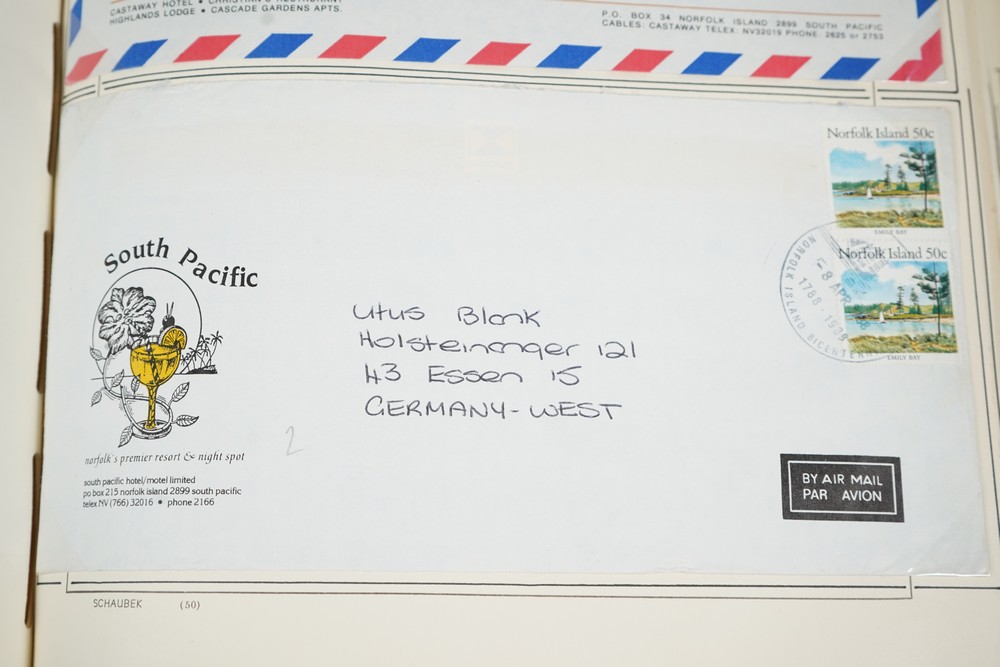 CASTAWAY HOTEL • CHRISTIAN'S RESTAURANT
HIGHLANDS LODGE • CASCADE GARDENS APTS.
P.O. BOX 34 NORFOLK ISLAND 2899 SOUTH PACIFIC
CABLES: CASTAWAY TELEX: NV32019 PHONE: 2625 or 2753
Norfolk Island 50c
EMILY BAY
Norfolk Island 50c
EMILY BAY
NORFOLK ISLAND BICENTEN
-8 APR
1788 - 1988
South Pacific
norfolk's premier resort & night spot
south pacific hotel/motel limited
po box 215 norfolk island 2899 south pacific
telex NV (766) 32016 • phone 2166
Utus Blank
Holsteinanger 121
43 Essen 15
GERMANY-WEST
2
BY AIR MAIL
PAR AVION
SCHAUBEK (50)